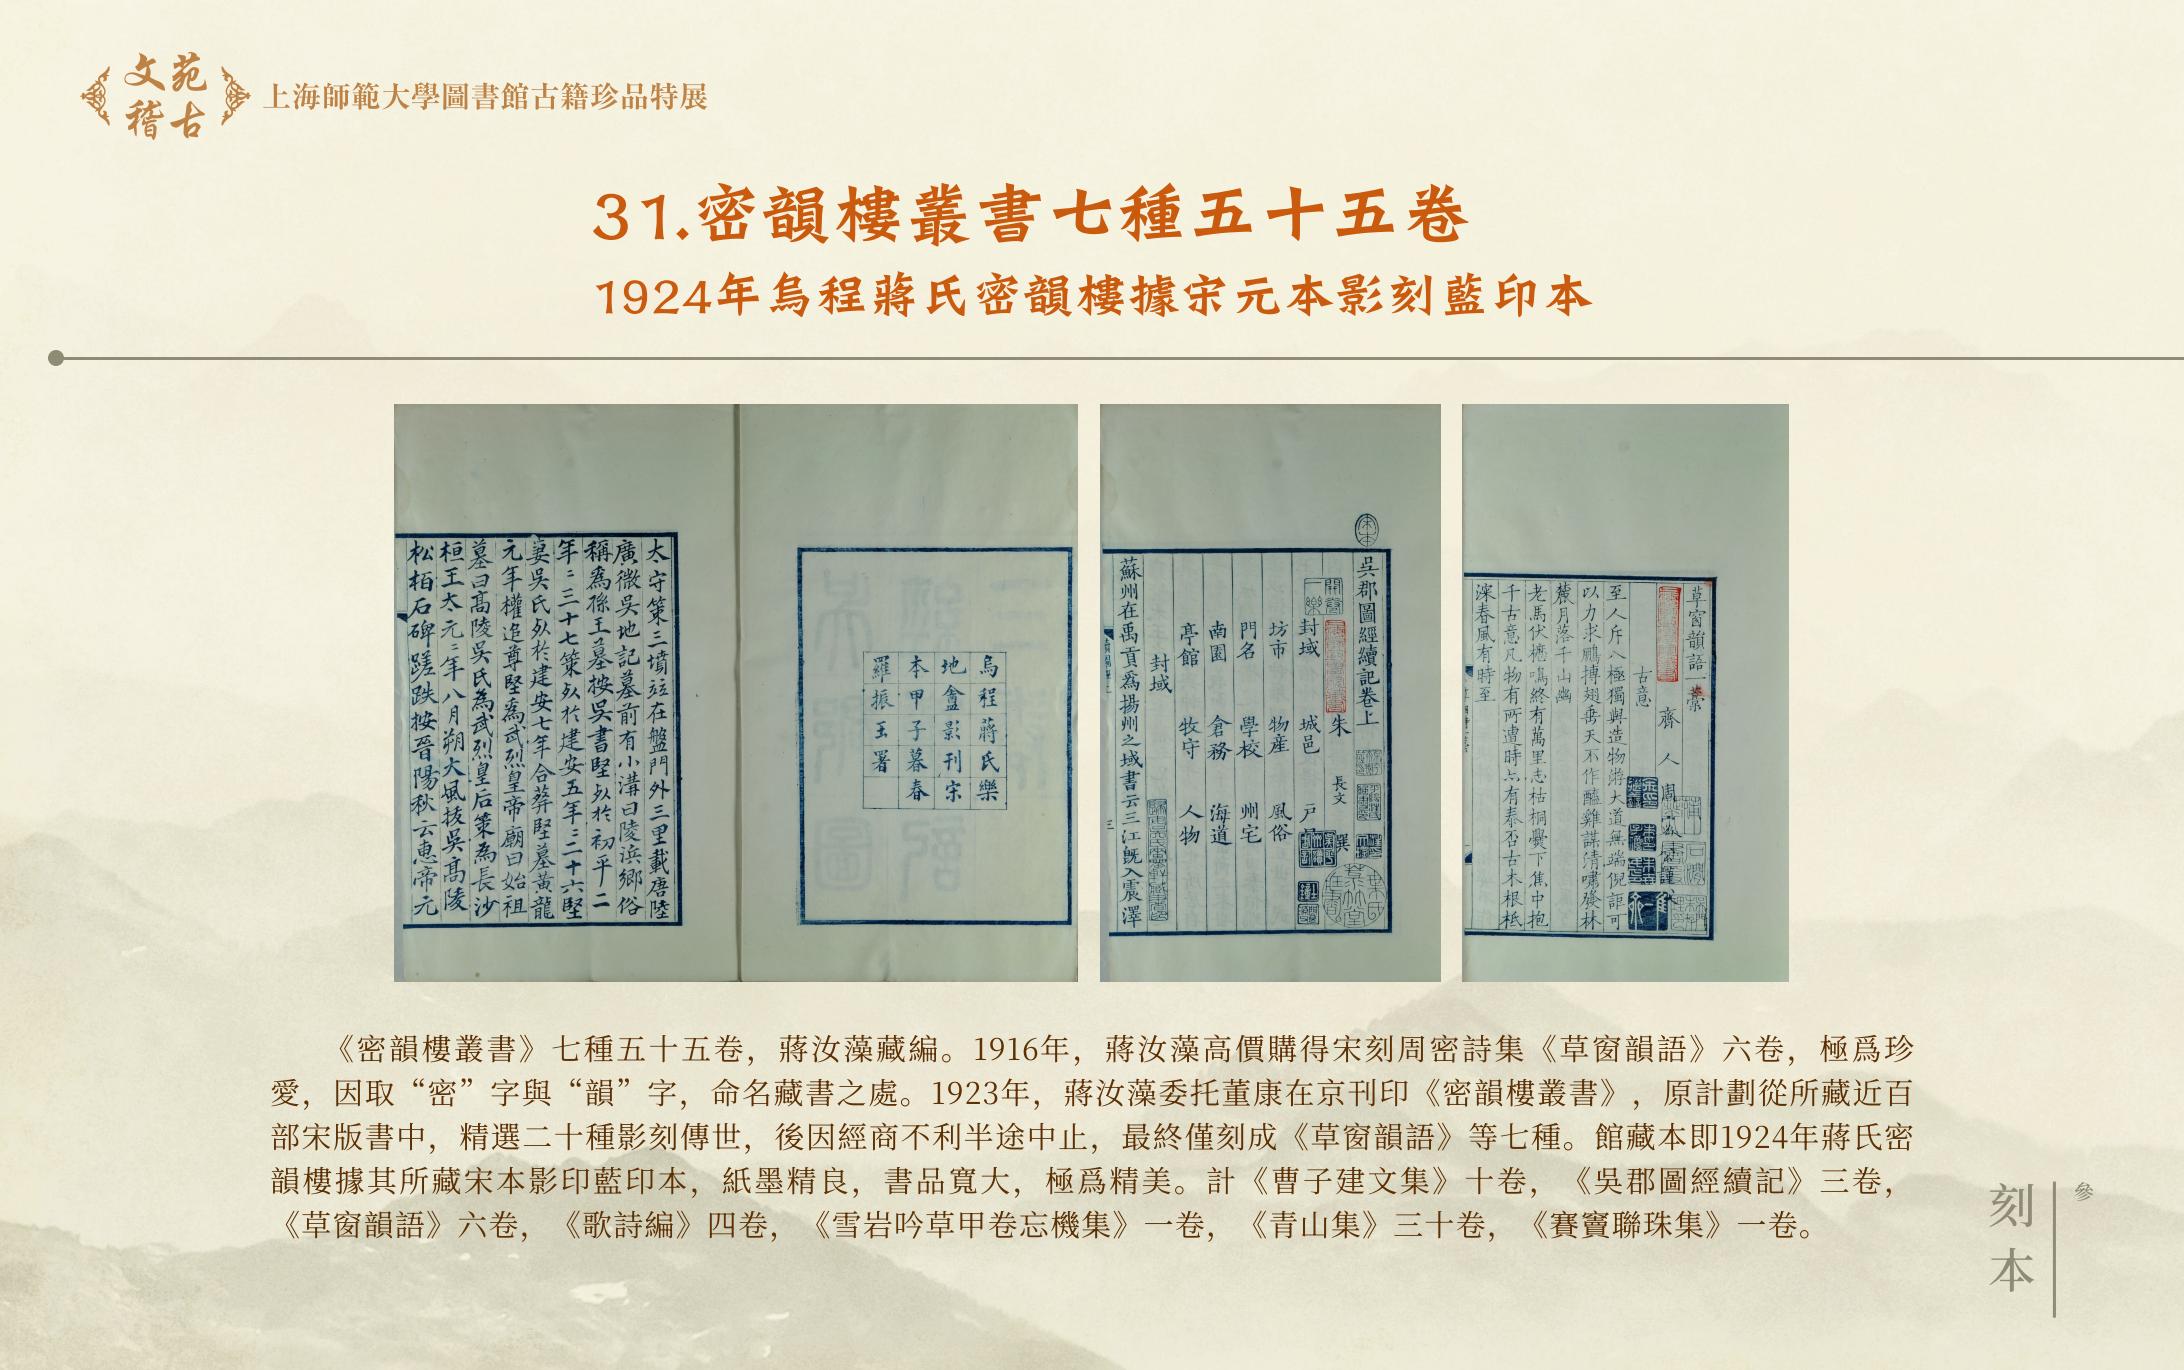 文苑
稽古
上海師範大學圖書館古籍珍品特展
31.密韻樓叢書七種五十五卷
1924年烏程蔣氏密韻樓據宋元本影刻藍印本
太守策三墳竝在盤門外三里載唐陸
廣微吳地記墓前有小溝曰陵浜鄉俗
稱爲孫王墓按吳書堅歿於初平二
年二三十七策歿於建安五年二二十六堅
妻吳氏歿於建安七年合葬堅墓黃龍
元年權追尊堅爲武烈皇帝廟曰始祖
墓曰高陵吳氏爲武烈皇后策爲長沙
桓王太元二年八月朔大風拔吳高陵
松柏石碑蹉跌按晉陽秋云惠帝元
烏程蔣氏樂
地盦影刊宋
本甲子暮春
羅振玉署
吳郡圖經續記卷上
朱 長文 撰
封域 城邑 戶
坊市 物産 風俗
門名 學校 州宅
南園 倉務 海道
亭館 牧守 人物
封域
蘇州在禹貢爲揚州之域書云三江旣入震澤
草窗韻語一藁
齊人周
古意
至人斥八極獨與造物游大道無端倪詎可
以力求鵬搏翅垂天不作醯雞謀清嘯發林
麓月落千山幽
老馬伏櫪鳴終有萬里志枯桐爨下焦中抱
千古意凡物有所遭時亦有泰否古木根柢
深春風有時至
《密韻樓叢書》七種五十五卷，蔣汝藻藏編。1916年，蔣汝藻高價購得宋刻周密詩集《草窗韻語》六卷，極爲珍
愛，因取“密”字與“韻”字，命名藏書之處。1923年，蔣汝藻委托董康在京刊印《密韻樓叢書》，原計劃從所藏近百
部宋版書中，精選二十種影刻傳世，後因經商不利半途中止，最終僅刻成《草窗韻語》等七種。館藏本即1924年蔣氏密
韻樓據其所藏宋本影印藍印本，紙墨精良，書品寬大，極爲精美。計《曹子建文集》十卷，《吳郡圖經續記》三卷，
《草窗韻語》六卷，《歌詩編》四卷，《雪岩吟草甲卷忘機集》一卷，《青山集》三十卷，《賽竇聯珠集》一卷。
參
刻本